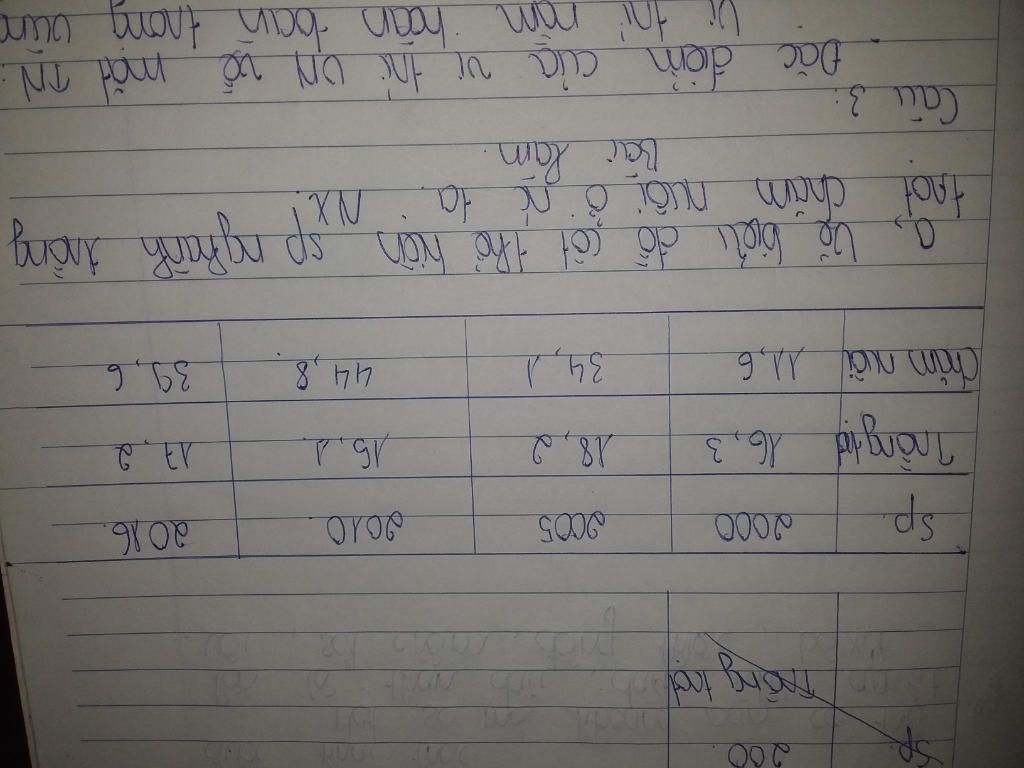 Sp. 200
Trồng trọt
Sp. 2000 2005 2010. 2016.
Trồng trọt 16,3 18,2 15,1. 17,2
Chăn nuôi 11,6 34,1 44,8. 39,6
a, Vẽ biểu đồ cột thể hiện sp nghành trồng
trọt chăn nuôi ở nc ta. NX!
Bài làm.
Câu 3:
Đặc điểm của vị trí VN về mặt TN:
Vị trí nằm hoàn toàn trong vùng